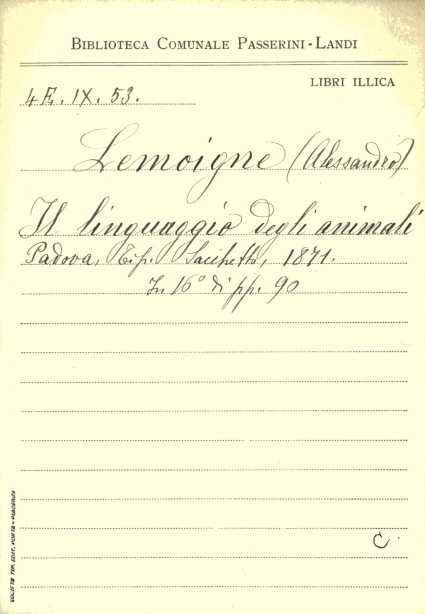 BIBLIOTECA COMUNALE PASSERINI-LANDI
LIBRI ILLICA
4E. IX. 53.
Lemoigne (Alessandro)
Il linguaggio degli animali
Padova, Tip. Sacchetto, 1871.
In 16° di pp. 90
C.
SOCIETÀ TIP. EDIT. PORTA - PIACENZA